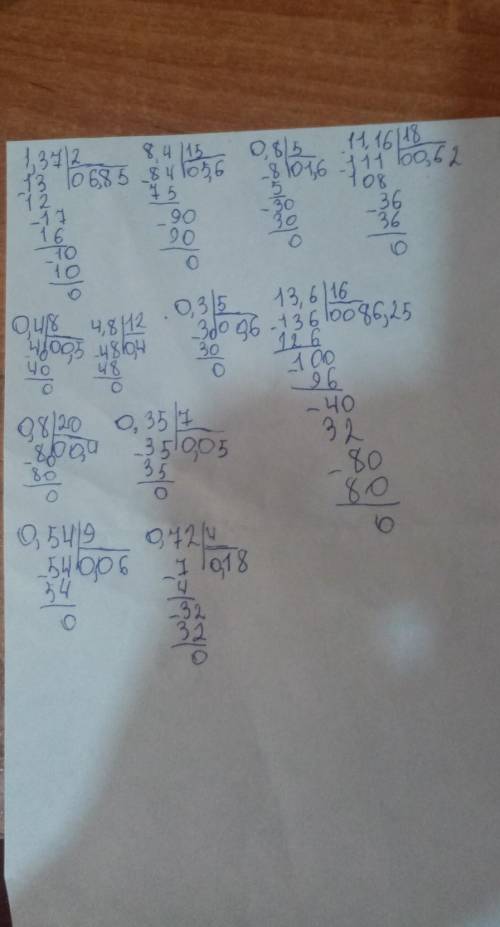 1,37|2 8,4|15 0,8|5 11,16|18
-13 |06,85 -84|05,6 -8|01,6 -111|00,62
12 75 5 108
-17 -90 -30 -36
16 90 30 36
-10 0 0 0
10
0
0,4|8 4,8|12 0,3|5 13,6|16
-40|00,5 -48|0,4 -30|00,6 -136|0086,25
40 48 30 126
0 0 0 -100
96
-40
32
-80
80
0
0,8|20 0,35|7
-80|00,4 -35|0,05
80 35
0 0
0,54|9 0,72|4
-54|0,06 -7|0,18
54 4
0 -32
32
0